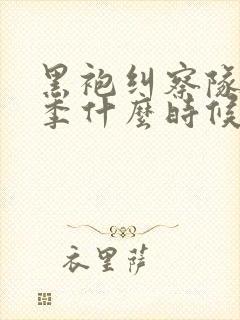 黑袍纠察隊
季什麼時候
衣里萨